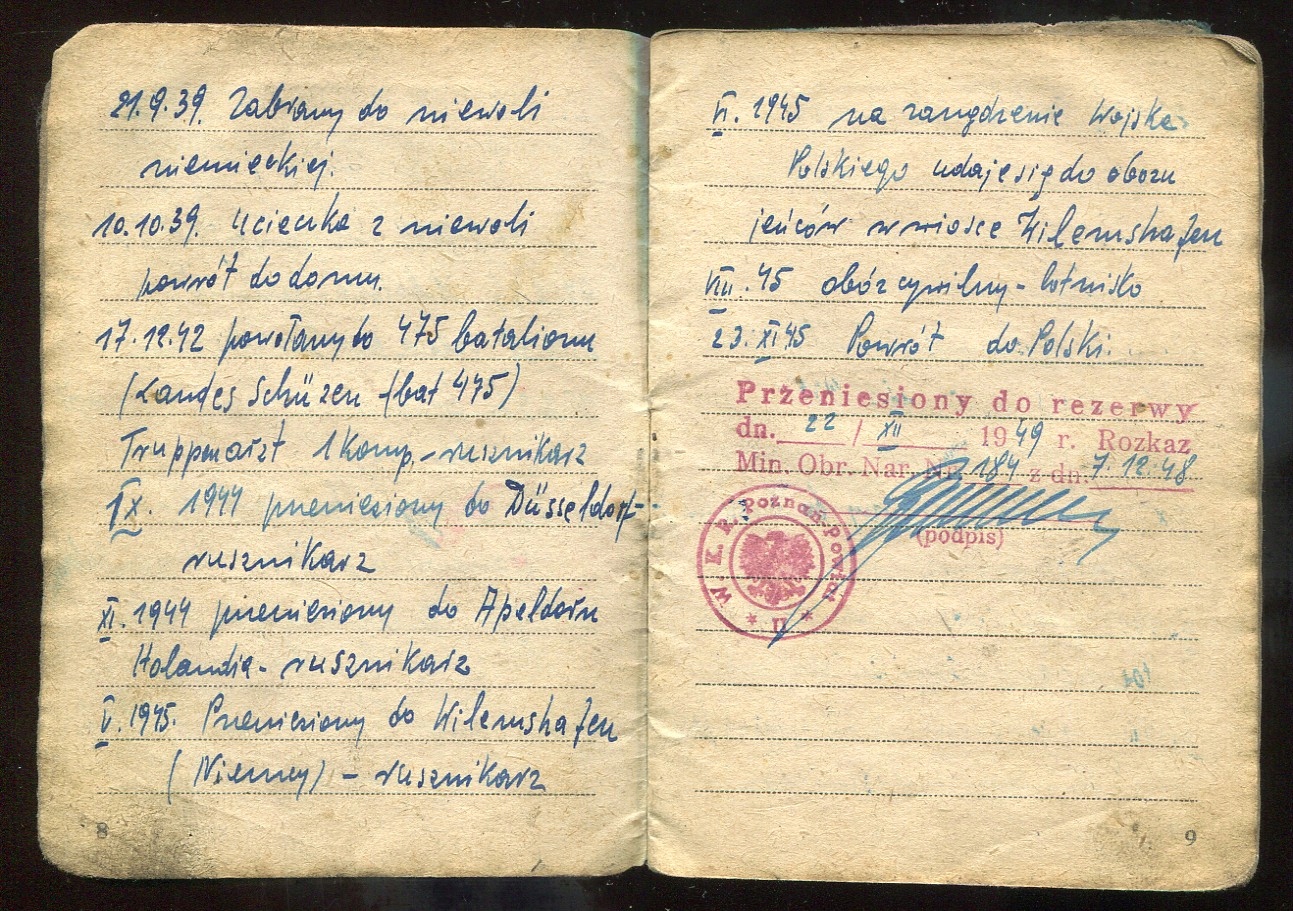 21.9.39. Zabrany do niewoli
niemieckiej.
10.10.39. Ucieczka z niewoli
powrót do domu.
17.12.42 powołany do 475 batalionu
(Landes Schüzen (bat 475)
Truppenarzt 1 Komp. - rusznikarz
IX. 1944 przeniesiony do Düsseldorf-
rusznikarz
XI. 1944 przeniesiony do Apeldorn
Holandia - rusznikarz
V. 1945. Przeniesiony do Wilemshafen
(Niemcy) - rusznikarz
8
VI. 1945 na zarządzenie Wojska
Polskiego udaje się do obozu
jeńców w wiosce Wilemshafen
VIII.45 obóz cywilny - lotnisko
23.XI 45 Powrót do Polski.
Przeniesiony do rezerwy
dn. 22 / XII 1949 r. Rozkaz
Min. Obr. Nar. Nr 184 z dn. 7.12.48
(podpis)
W. K. R. Poznań-Powiat
II
9